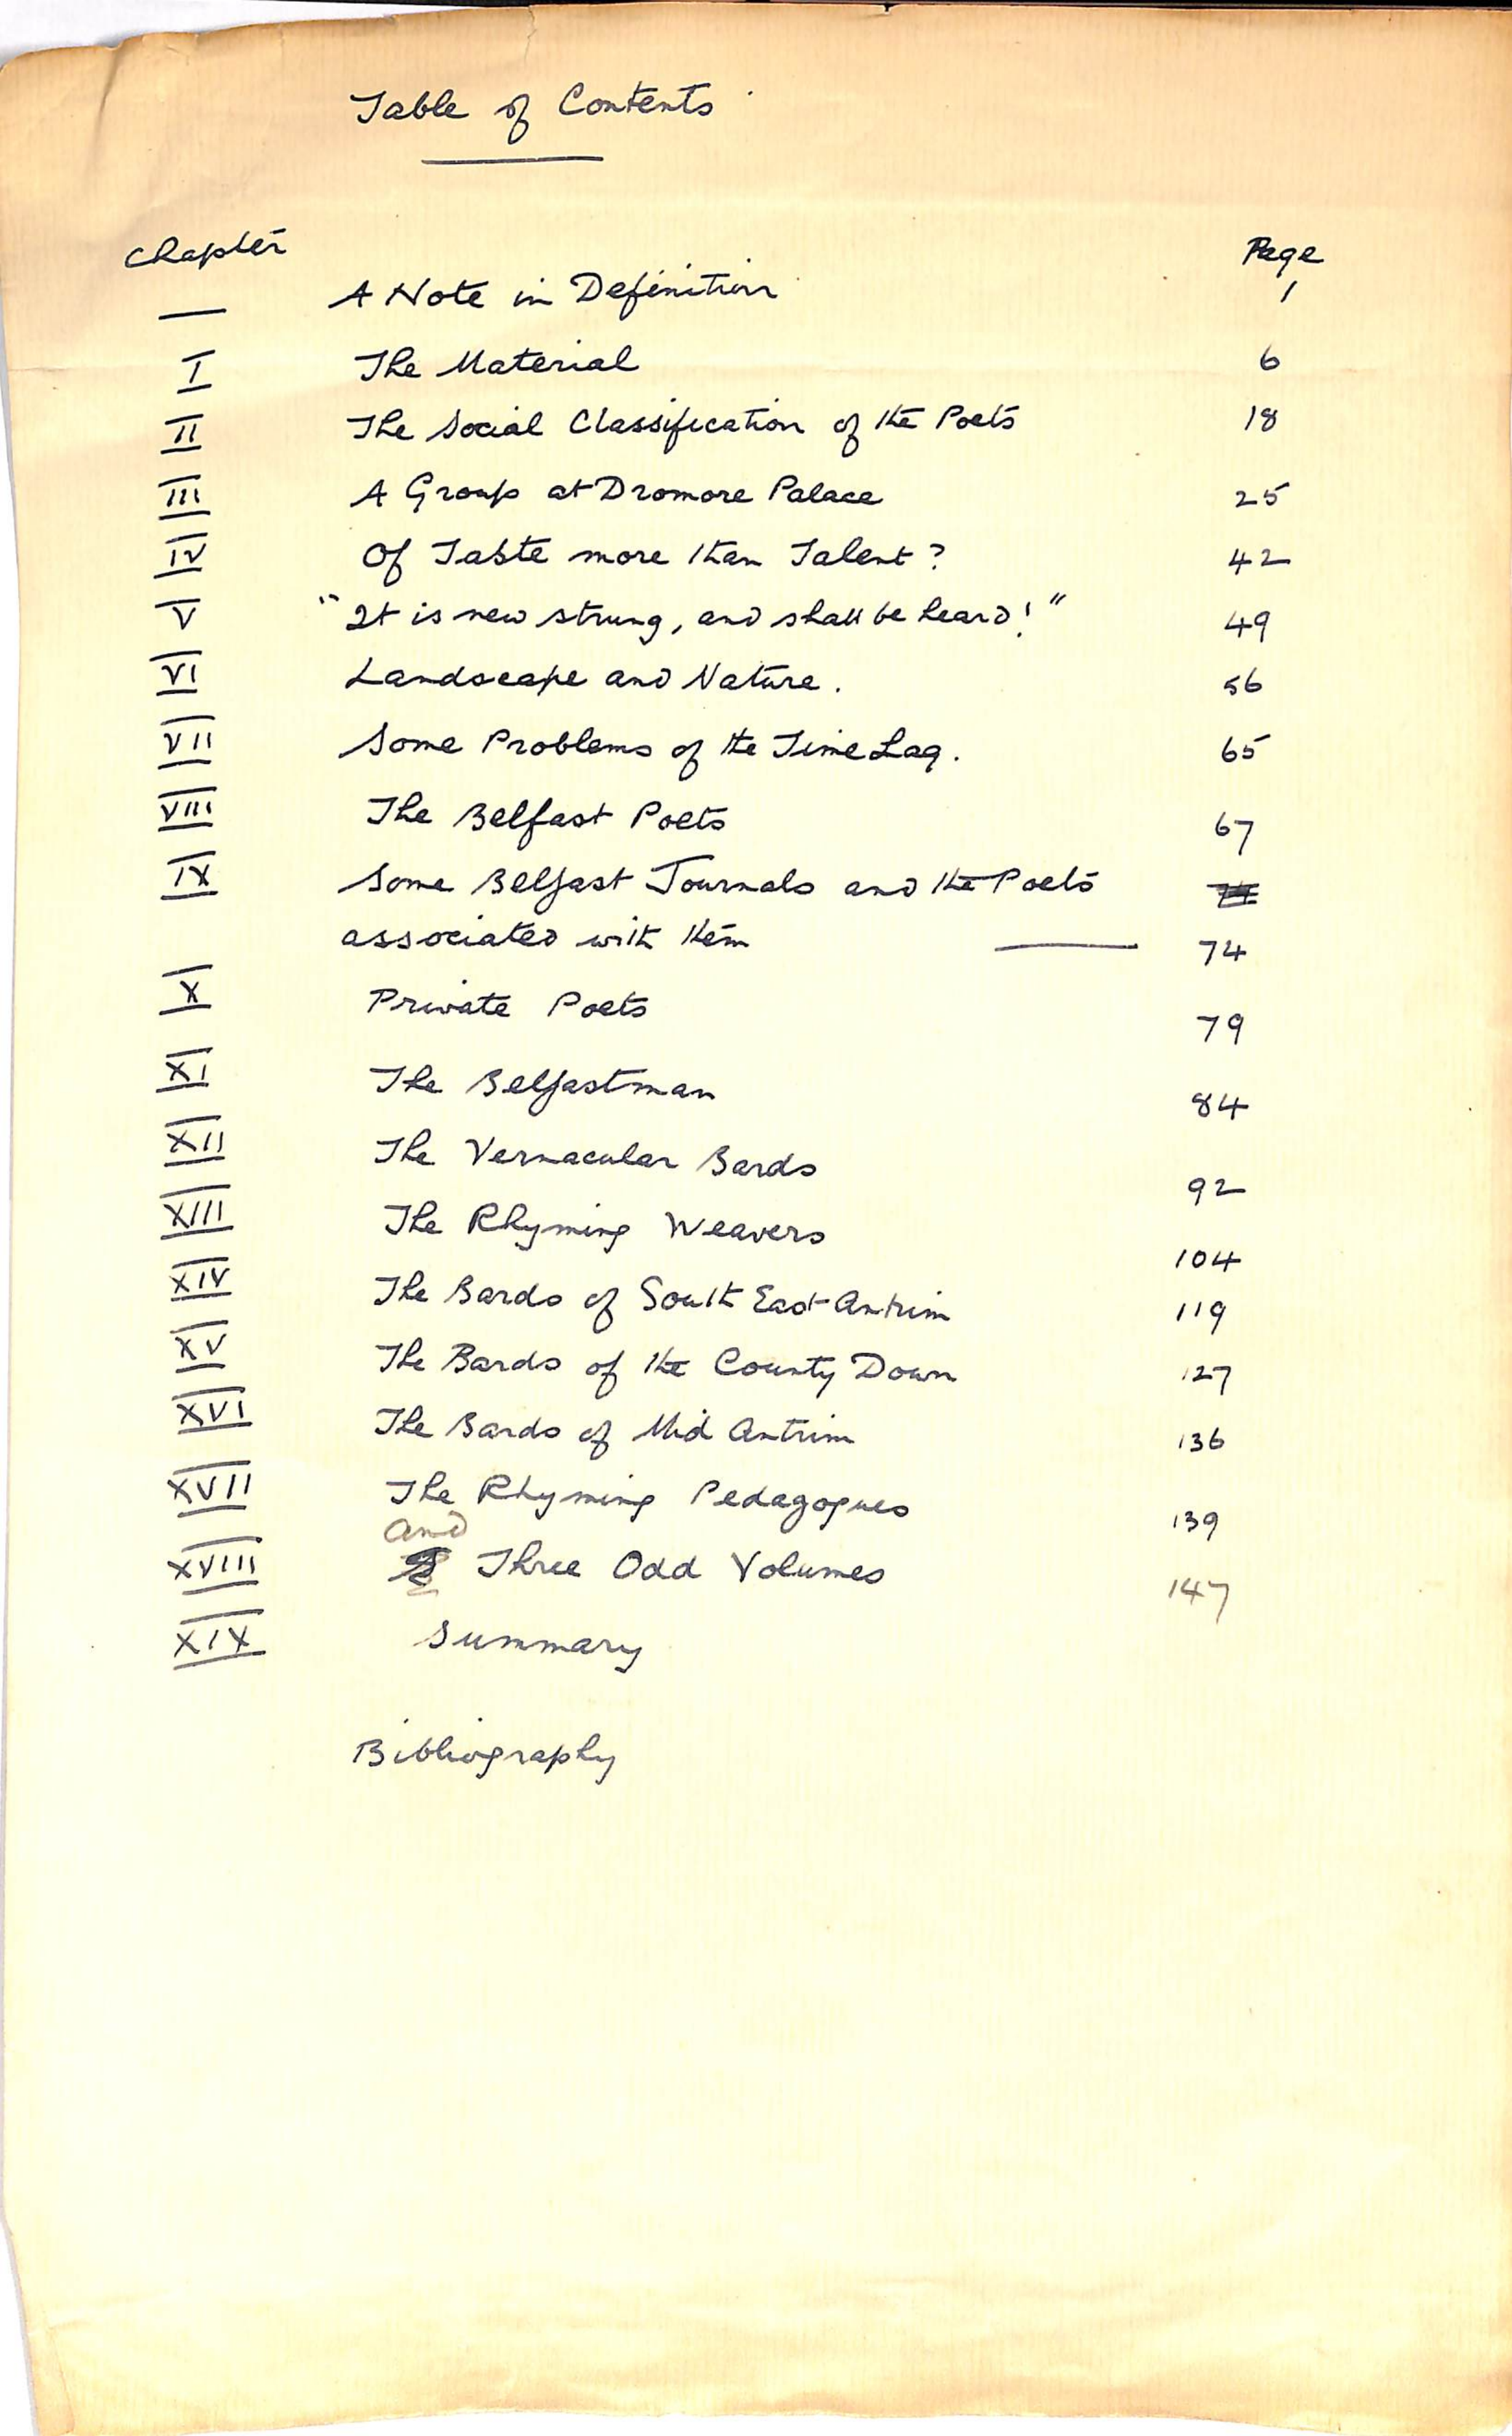 Table of Contents
Chapter Page
— A Note in Definition 1
I The Material 6
II The Social Classification of the Poets 18
III A Group at Dromore Palace 25
IV Of Taste more than Talent? 42
V "It is new strung, and shall be heard!" 49
VI Landscape and Nature. 56
VII Some Problems of the Time Lag. 65
VIII The Belfast Poets 67
IX Some Belfast Journals and the Poets
associated with them — 74
X Private Poets 79
XI The Belfastman 84
XII The Vernacular Bards 92
XIII The Rhyming Weavers 104
XIV The Bards of South East Antrim 119
XV The Bards of the County Down 127
XVI The Bards of Mid Antrim 136
XVII The Rhyming Pedagogues 139
and
XVIII Three Odd Volumes 147
XIX Summary
Bibliography